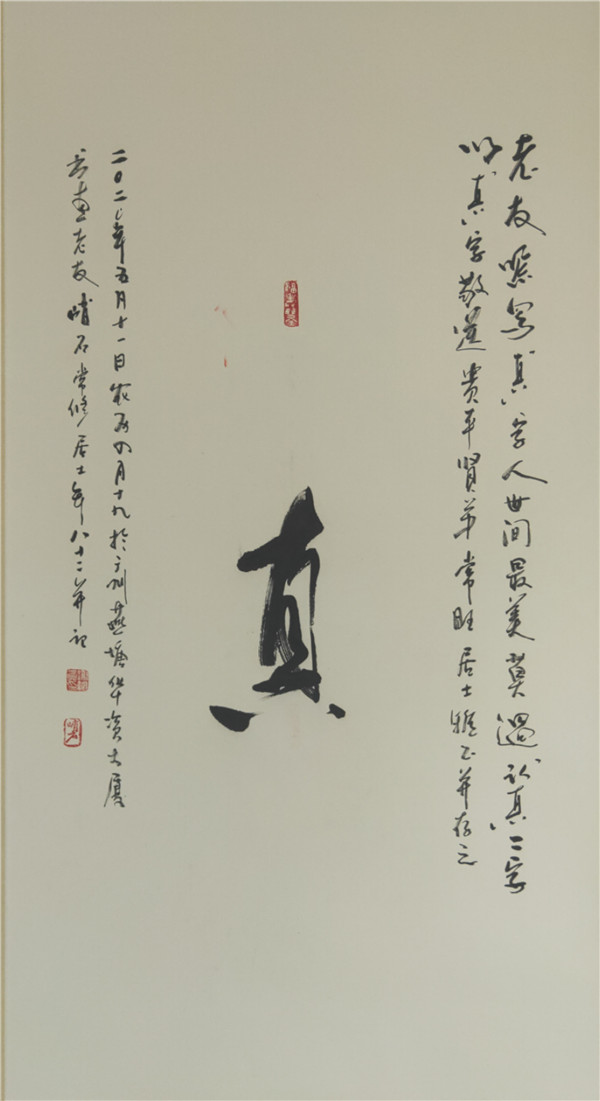 老友嘱写真字人世间最美莫過认真二字
以真字敬送贵平贤弟常旺居士雅正并存之
真
二0二0年五月十一日农历四月十九於广州燕塘华资大厦
老友峭石常修居士年八十二并记